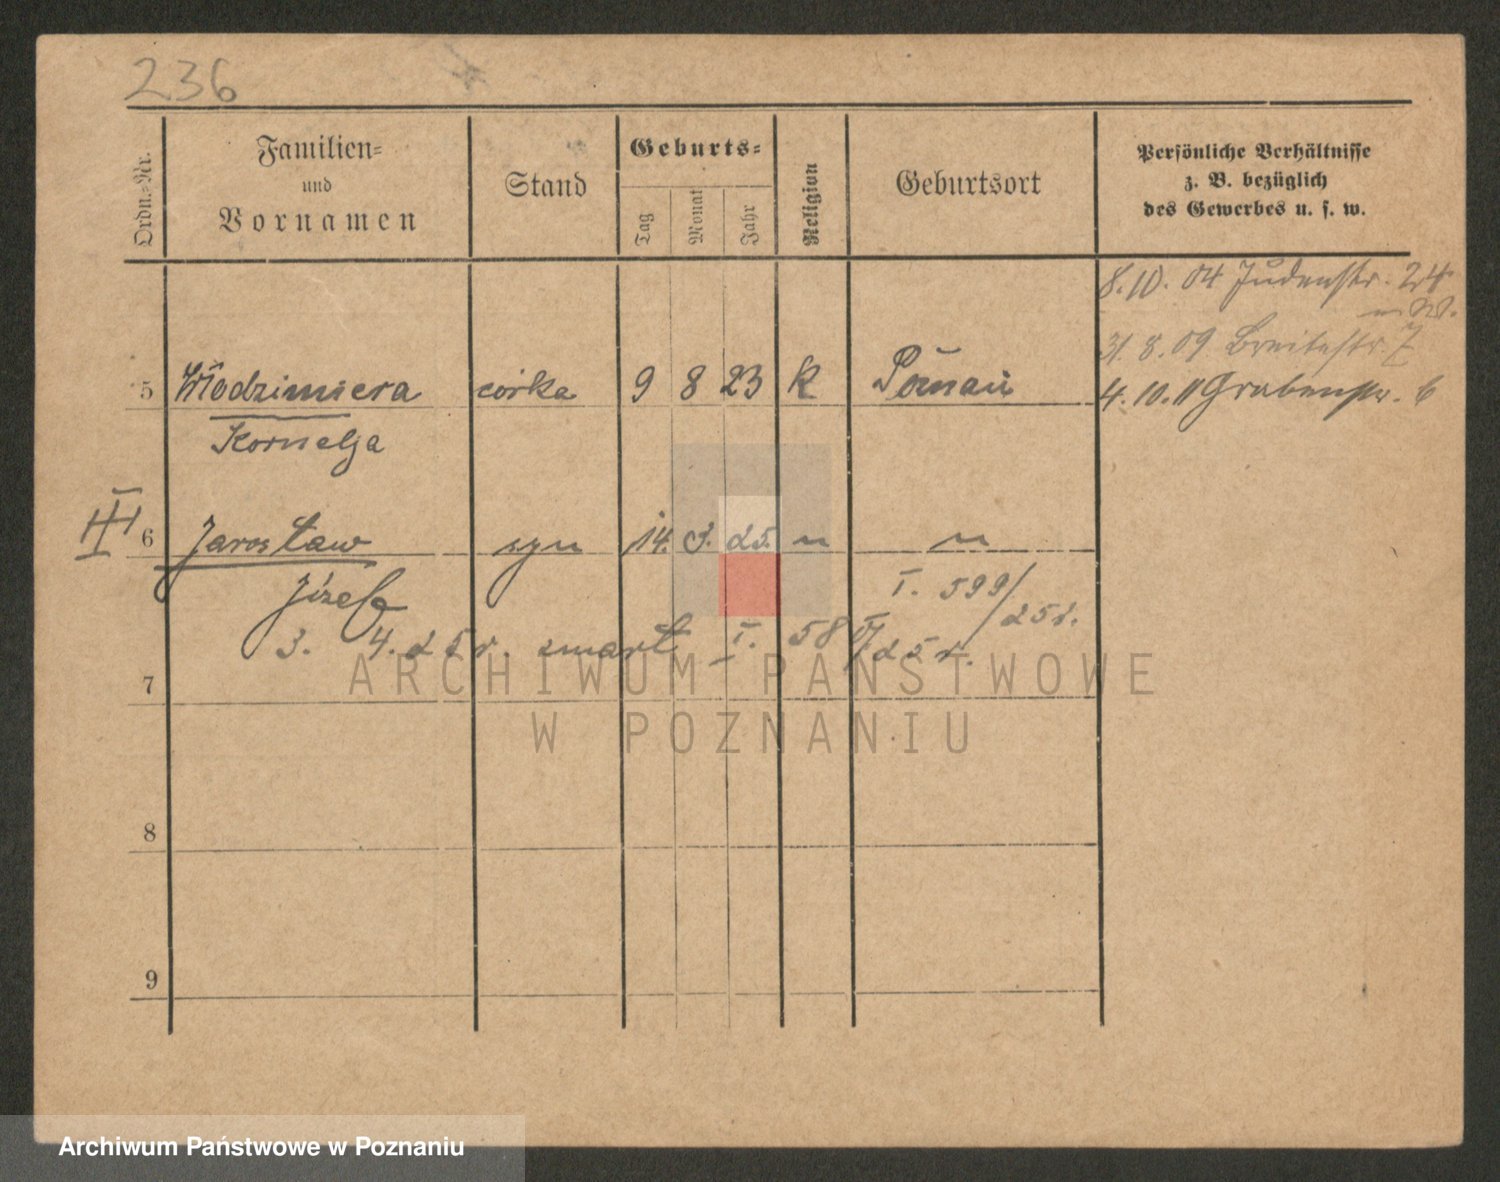 236
Ordn.=Nr.
Familien=
und
Vornamen
Stand
Geburts=
Tag
Monat
Jahr
Religion
Geburtsort
Persönliche Verhältnisse
z. B. bezüglich
des Gewerbes u. s. w.
8. 10. 04 Judenstr. 24
31. 8. 09 Breitestr. 7
4. 10. 11 Grabenstr. 6
5 Włodzimiera córka 9 8 23 K Poznań
Kornelja
III
6 Jarosław syn 14. 3. 25. " "
Józef
I. 599/25 r.
3. 4. 25 r. zmarł I. 58 /25 r.
7
8
9
ARCHIWUM PAŃSTWOWE
W POZNANIU
Archiwum Państwowe w Poznaniu